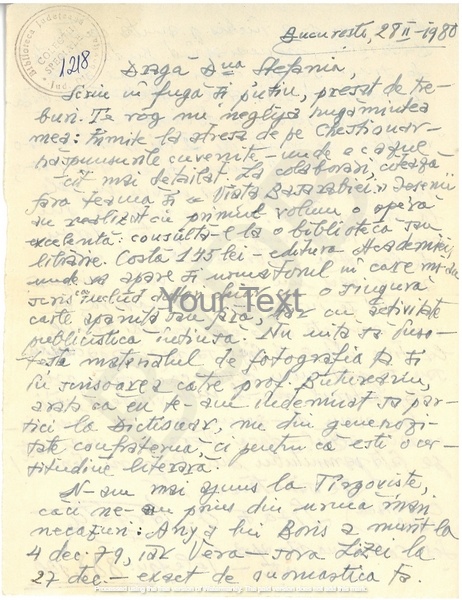 Biblioteca Județeană
1218
București, 28 II-1980
Dragă Dna Stefania,
Scriu în fugă și puțin, presat de tre-
buri. Te rog nu neglija rugămintea
mea: trimite la adresa de pe Chestionar
răspunsurile cuvenite — unde e cazul
cât mai detailat. La colaborări, adaugă
fără teamă și „Viața Basarabiei".
au realizat cu primul volum o operă
excelentă: consult-o la o bibliotecă sau
librărie. Costă 145 lei — editura Academiei,
unde va apare și următorul în care
scris o singură
Your Text
carte apărută sau cu activitate
publicistică întinsă. Nu uita să
materialul de fotografia ta și
în scrisoarea către prof.
arată că eu te-am îndemnat să par-
tici la Dicționar, nu din generozi-
tate confraternă, ci pentru că ești o cer-
titudine literară.
N-am mai ajuns la Tîrgoviște,
căci ne-au prins din urmă mari
necazuri: Any a lui Boris a murit la
4 dec. 79, iar Vera — sora Lizei la
27 dec. — exact de onomastica ta.